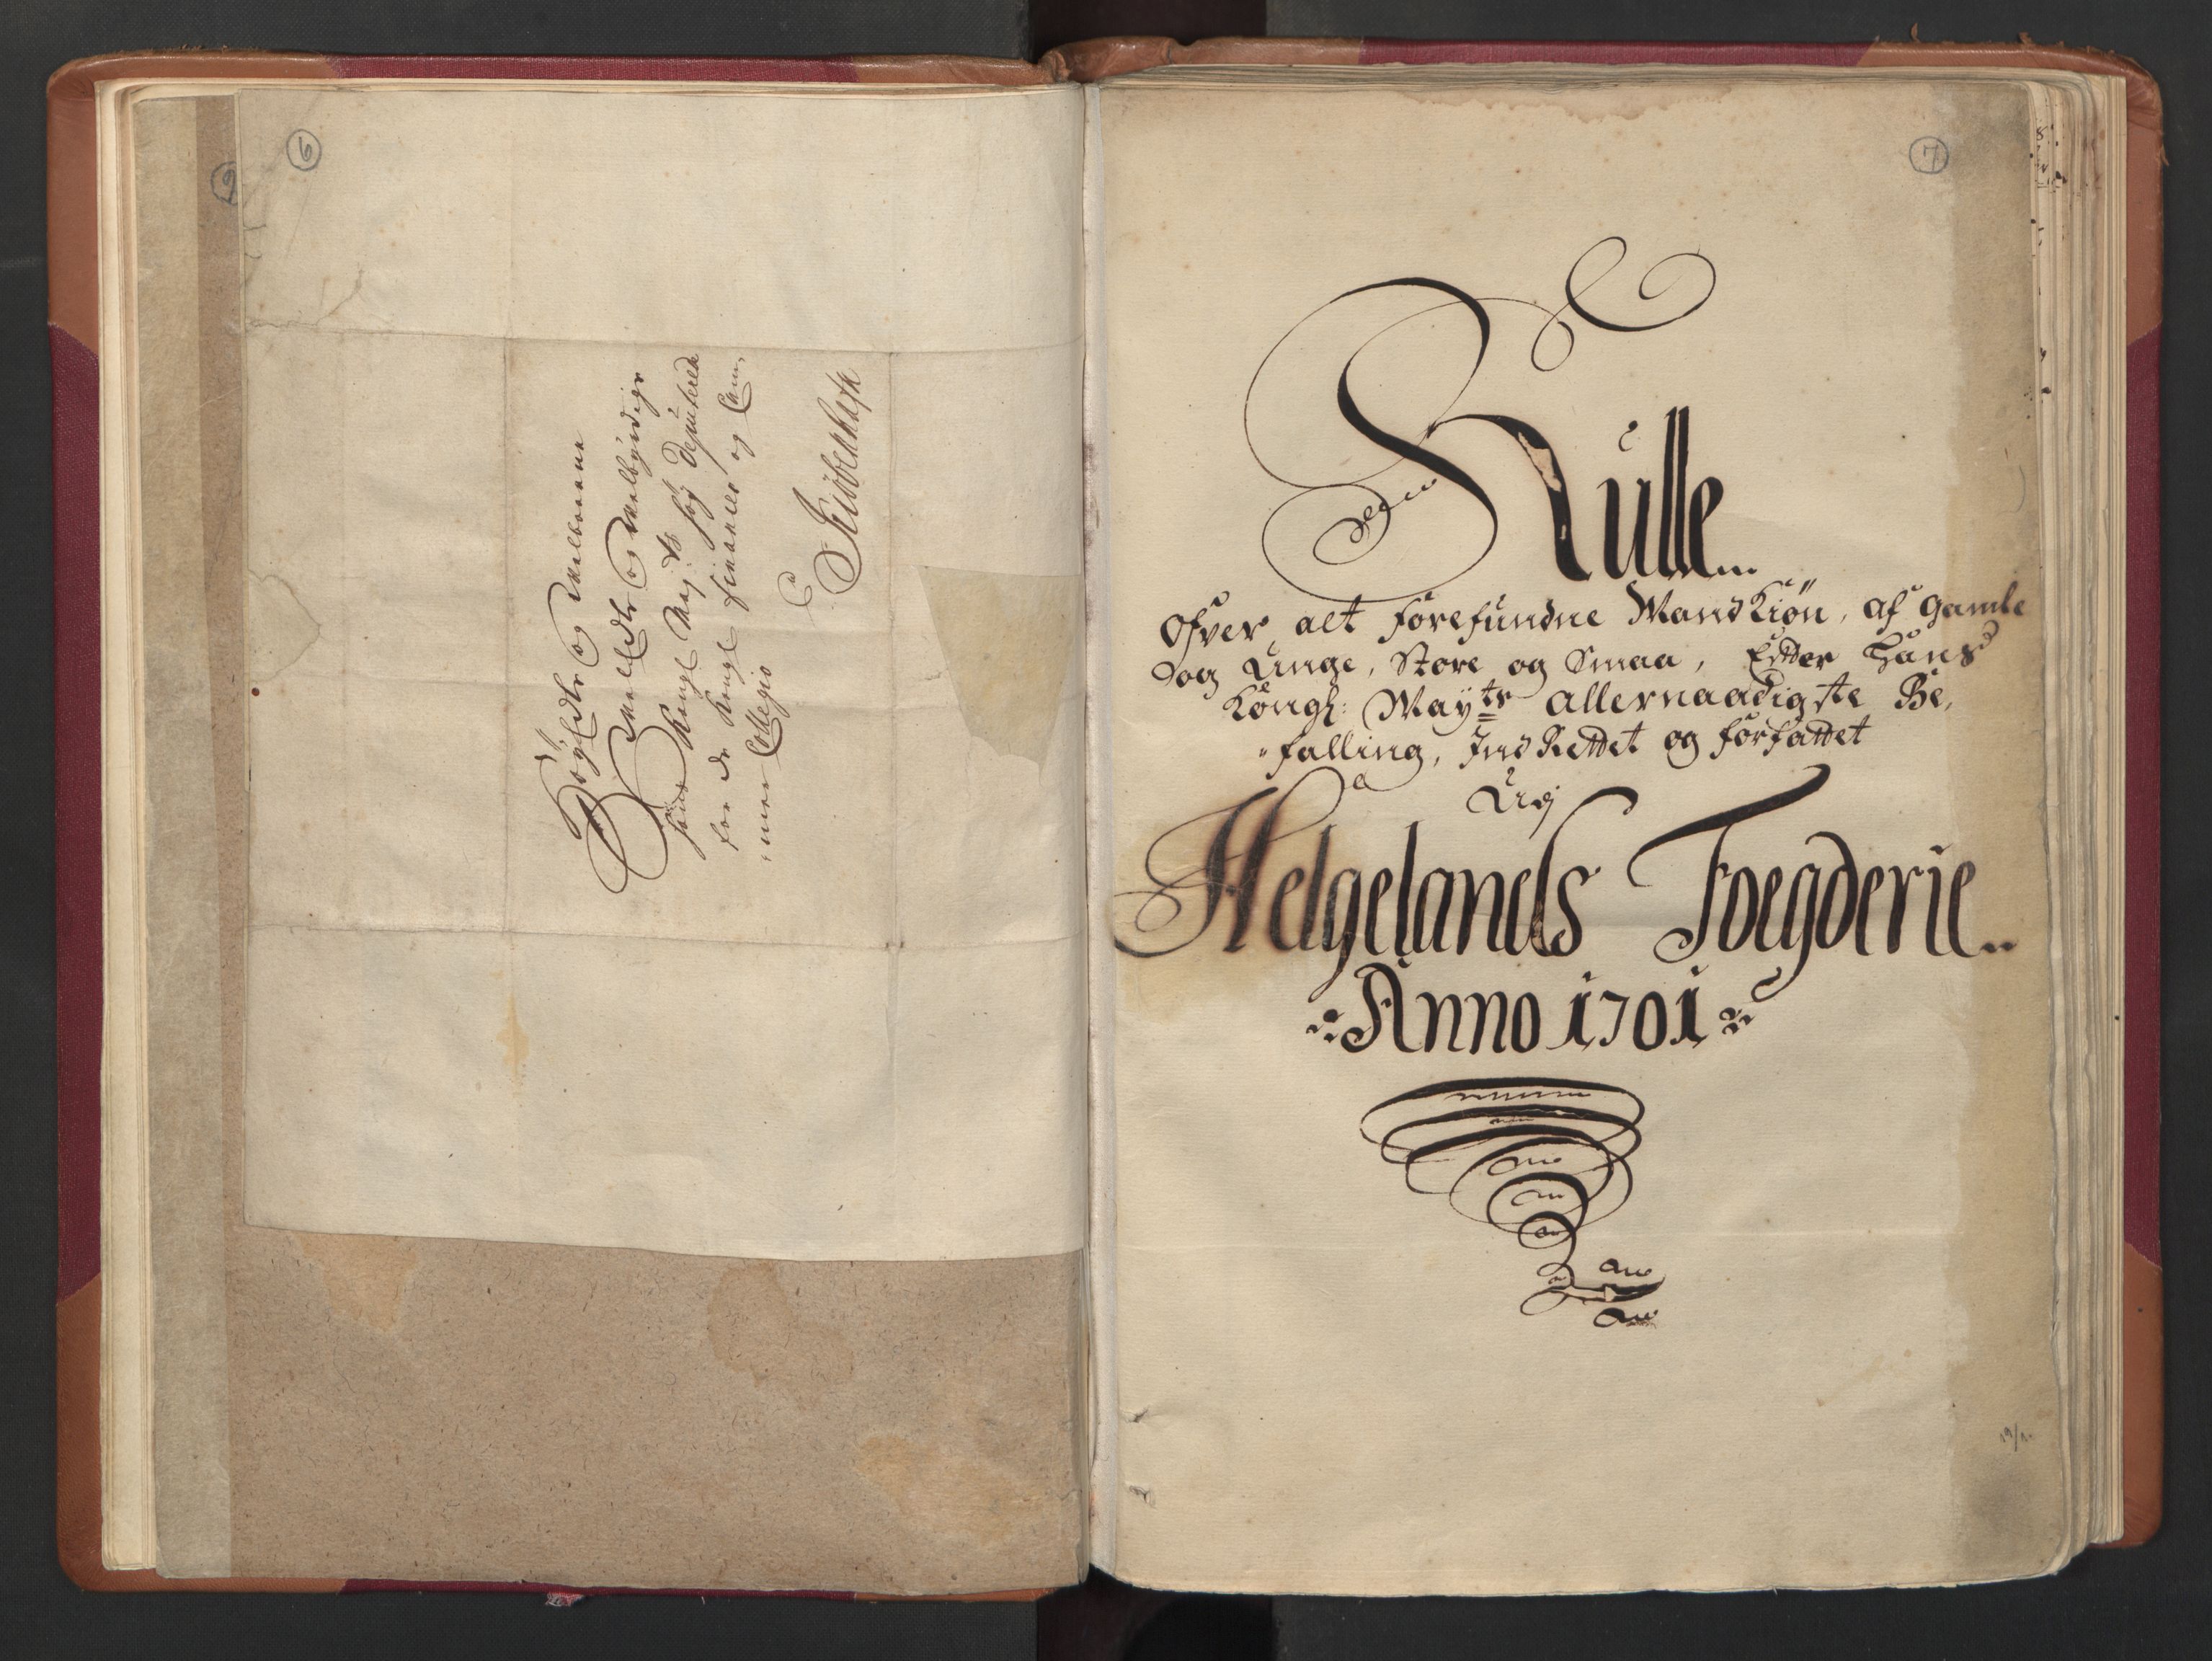 6
9
Höyædle og Velbaarne
Velædle og Velbyrdige
Hans Kongl Maj:ts høy Deputerede
for de Kongl Finantzer og Cam,
,,mer Collegio
a
Kiöbenhafn
7
Rulle
Ofver alt Forefundne MandKiøn, af Gamle
og Unge, Store og Smaa, Efdter Hans
Kongl: Mayts allernaadigste Be,
"falling, IndRettet og forfattet
Udj
Helgelands Foegderie
Anno 1701